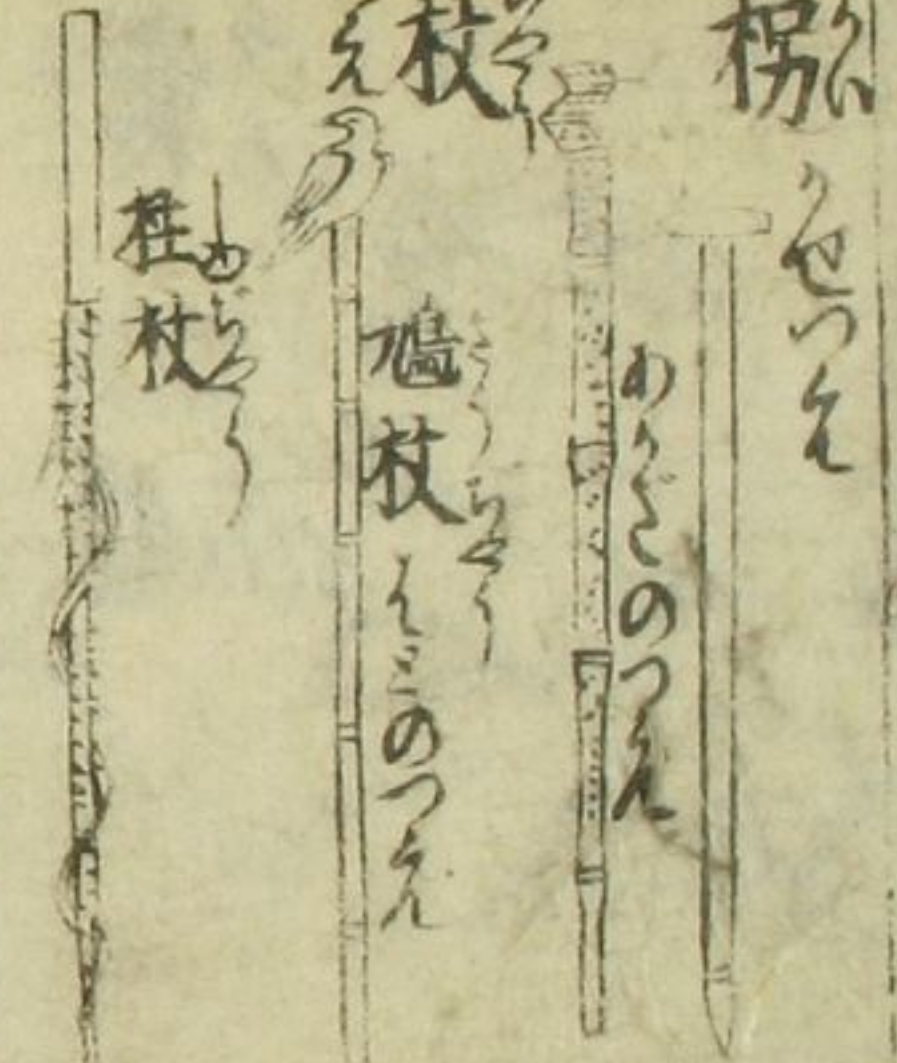 枴
かい
かせつえ
あかざのつえ
杖
やう
え
鳩杖
きうぢやう
はとのつえ
柱杖
しゆぢやう